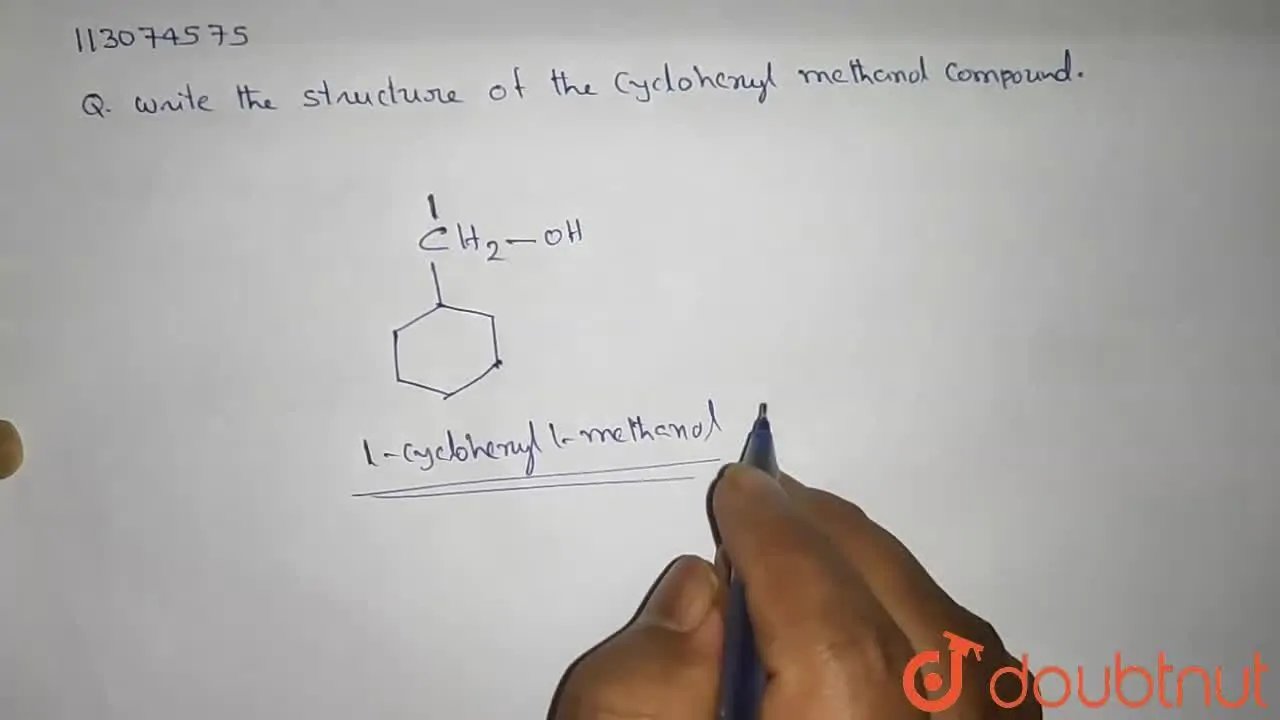 113074575
Q. write the structure of the Cyclohexyl methanol compound.
1
CH2-OH
1-cyclohexyl 1-methanol
doubtnut